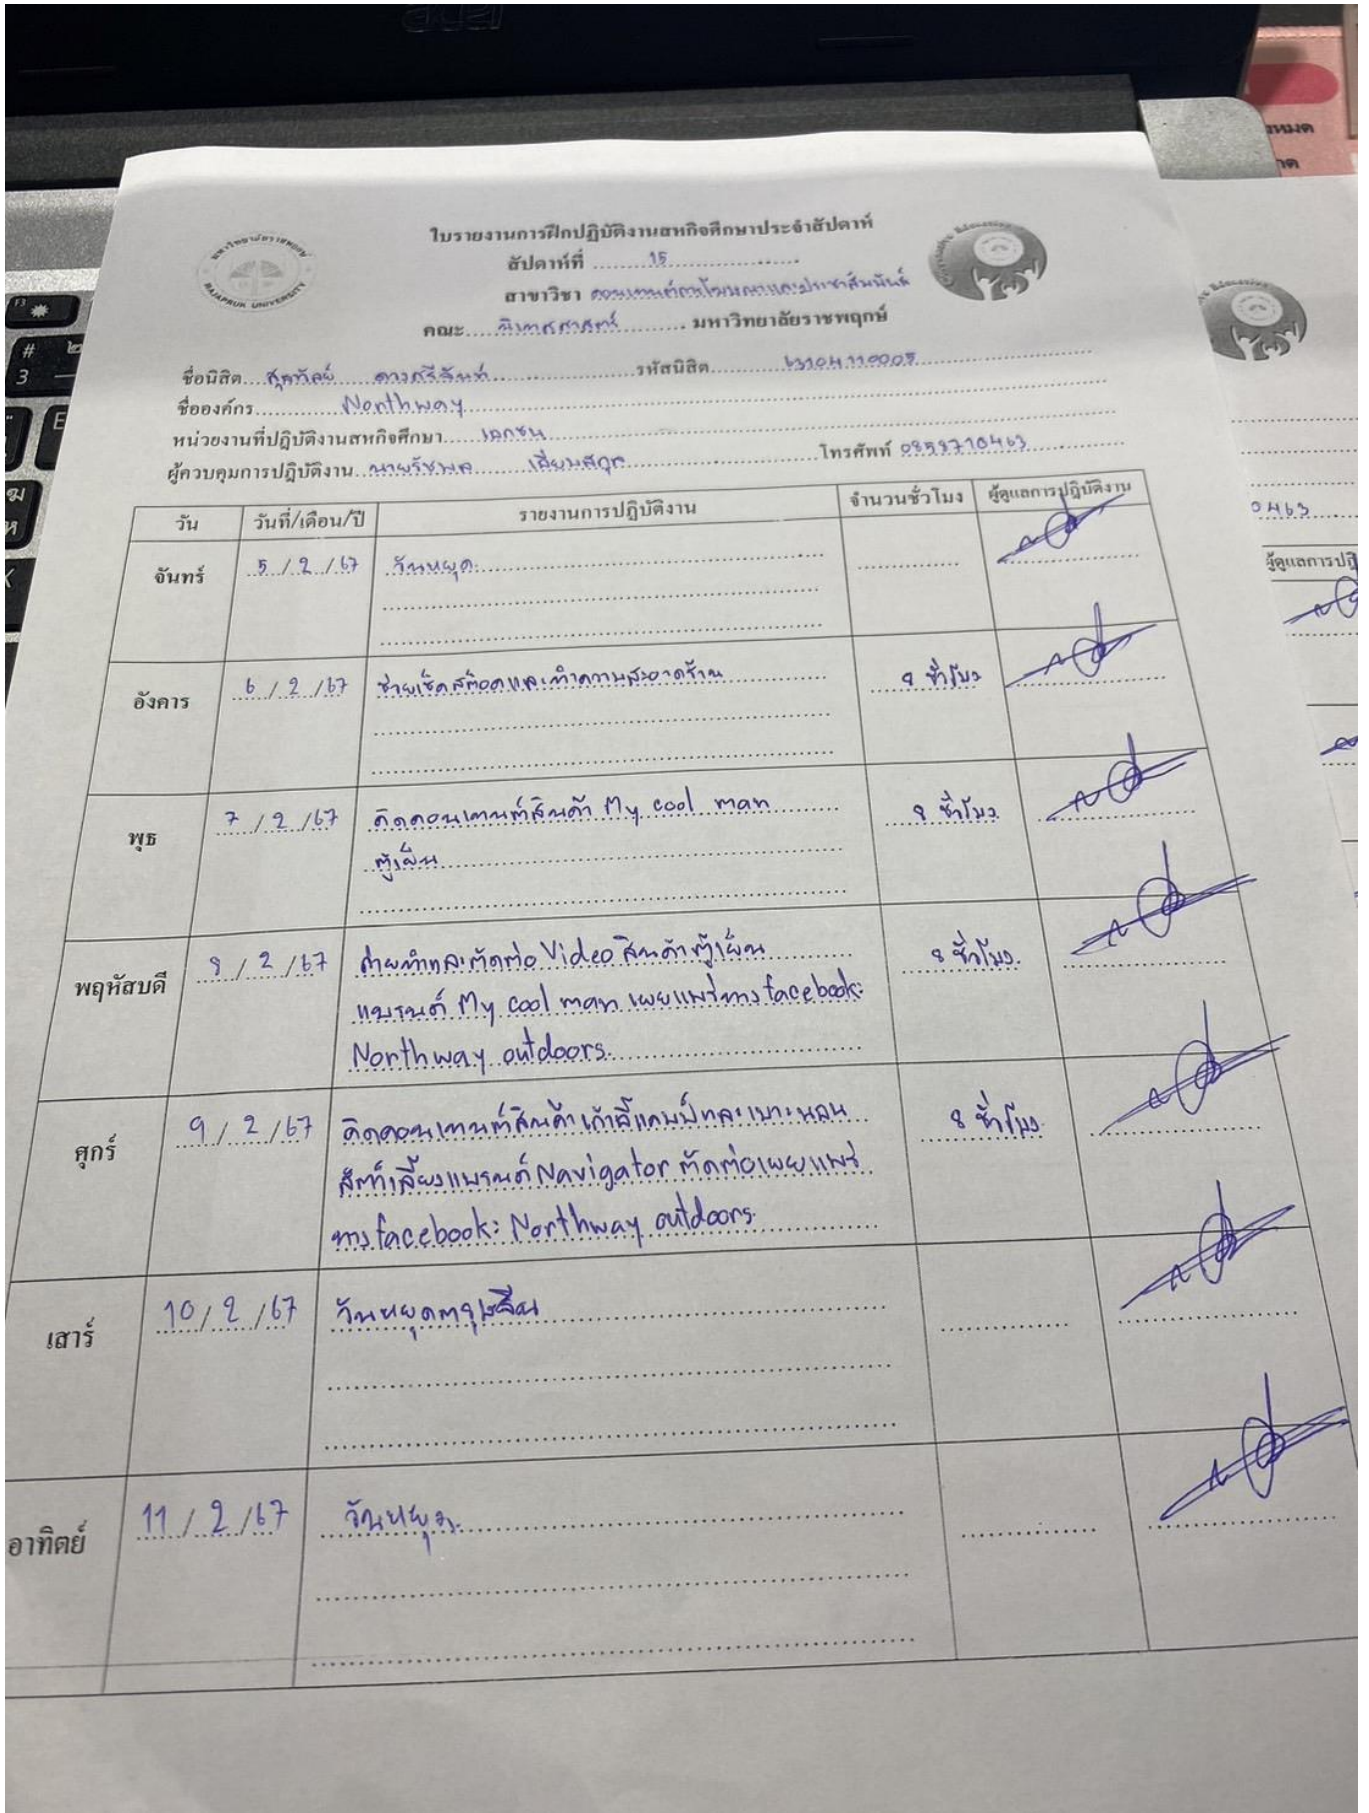 ใบรายงานการฝึกปฏิบัติงานสหกิจศึกษาประจำสัปดาห์
สัปดาห์ที่ 15
สาขาวิชา คอนเทนต์การโฆษณาและประชาสัมพันธ์
คณะ นิเทศศาสตร์ มหาวิทยาลัยราชพฤกษ์
RAJAPRUK UNIVERSITY
ชื่อนิสิต ดวงศรีจันท์ รหัสนิสิต 63104110005
ชื่อองค์กร Northway
หน่วยงานที่ปฏิบัติงานสหกิจศึกษา เอกชน
ผู้ควบคุมการปฏิบัติงาน นายรัชพล เสียมสกุล โทรศัพท์ 0958710463
วัน วันที่/เดือน/ปี รายงานการปฏิบัติงาน จำนวนชั่วโมง ผู้ดูแลการปฏิบัติงาน
จันทร์ 5/2/67 วันหยุด
อังคาร 6/2/67 ช่วยเช็คสต๊อคและทำความสะอาดร้าน 8 ชั่วโมง
พุธ 7/2/67 คิดคอนเทนต์สินค้า My cool man 8 ชั่วโมง
ตู้เย็น
พฤหัสบดี 8/2/67 ถ่ายทำและตัดต่อ Video สินค้าตู้เย็น 8 ชั่วโมง
แบรนด์ My cool man เผยแพร่ทาง facebook:
Northway outdoors
ศุกร์ 9/2/67 คิดคอนเทนต์สินค้าเก้าอี้แคมป์และเบาะนอน 8 ชั่วโมง
สัตว์เลี้ยงแบรนด์ Navigator ตัดต่อเผยแพร่
ทาง facebook: Northway outdoors
เสาร์ 10/2/67 วันหยุดตรุษจีน
อาทิตย์ 11/2/67 วันหยุด
0463
ผู้ดูแลการปฏิ